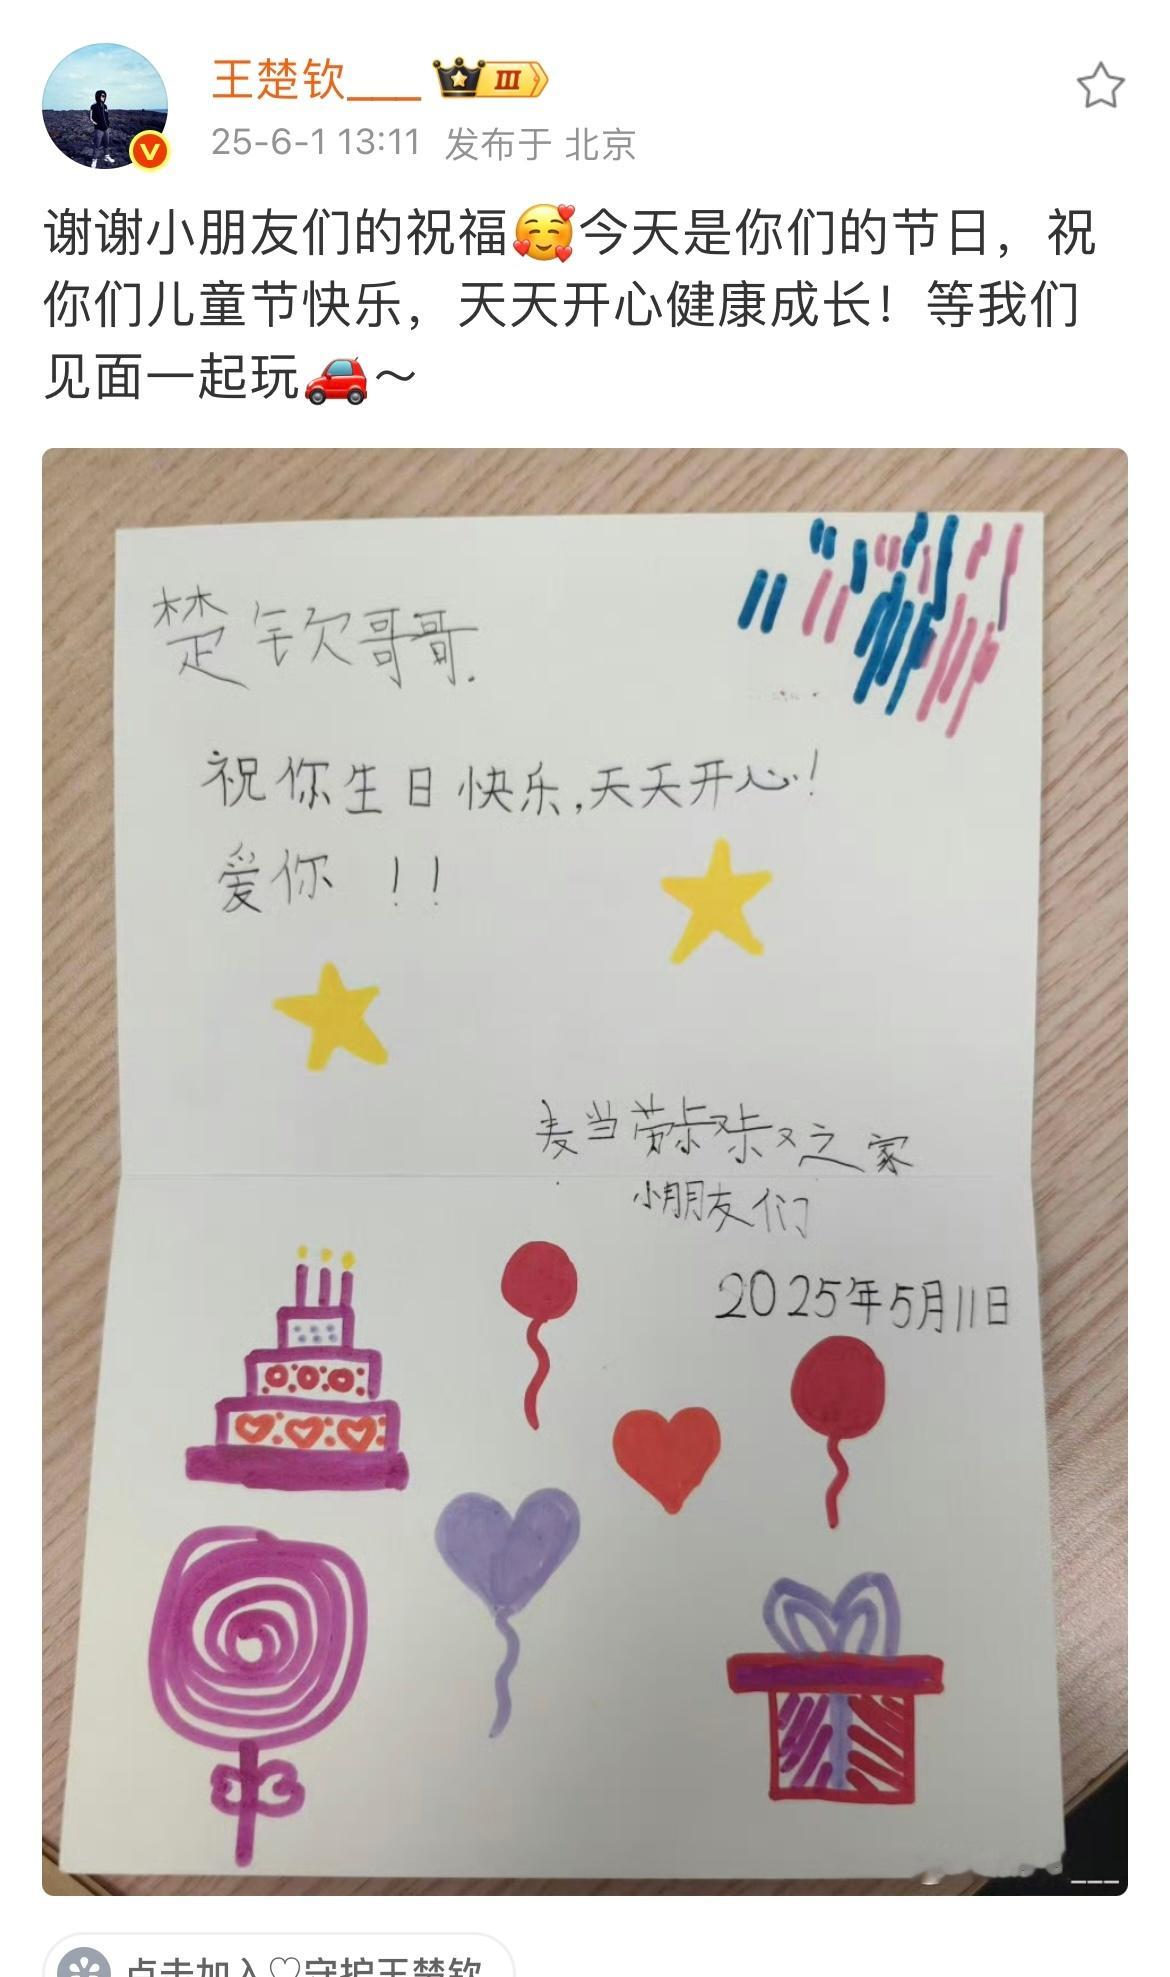 王楚钦___
III
25-6-1 13:11 发布于 北京
谢谢小朋友们的祝福🥰今天是你们的节日，祝
你们儿童节快乐，天天开心健康成长！等我们
见面一起玩🚗～
楚钦哥哥.
祝你生日快乐,天天开心!
爱你 !!
麦当劳卡叔卡叔之家
小朋友们
2025年5月11日
点击加入♡守护王楚钦